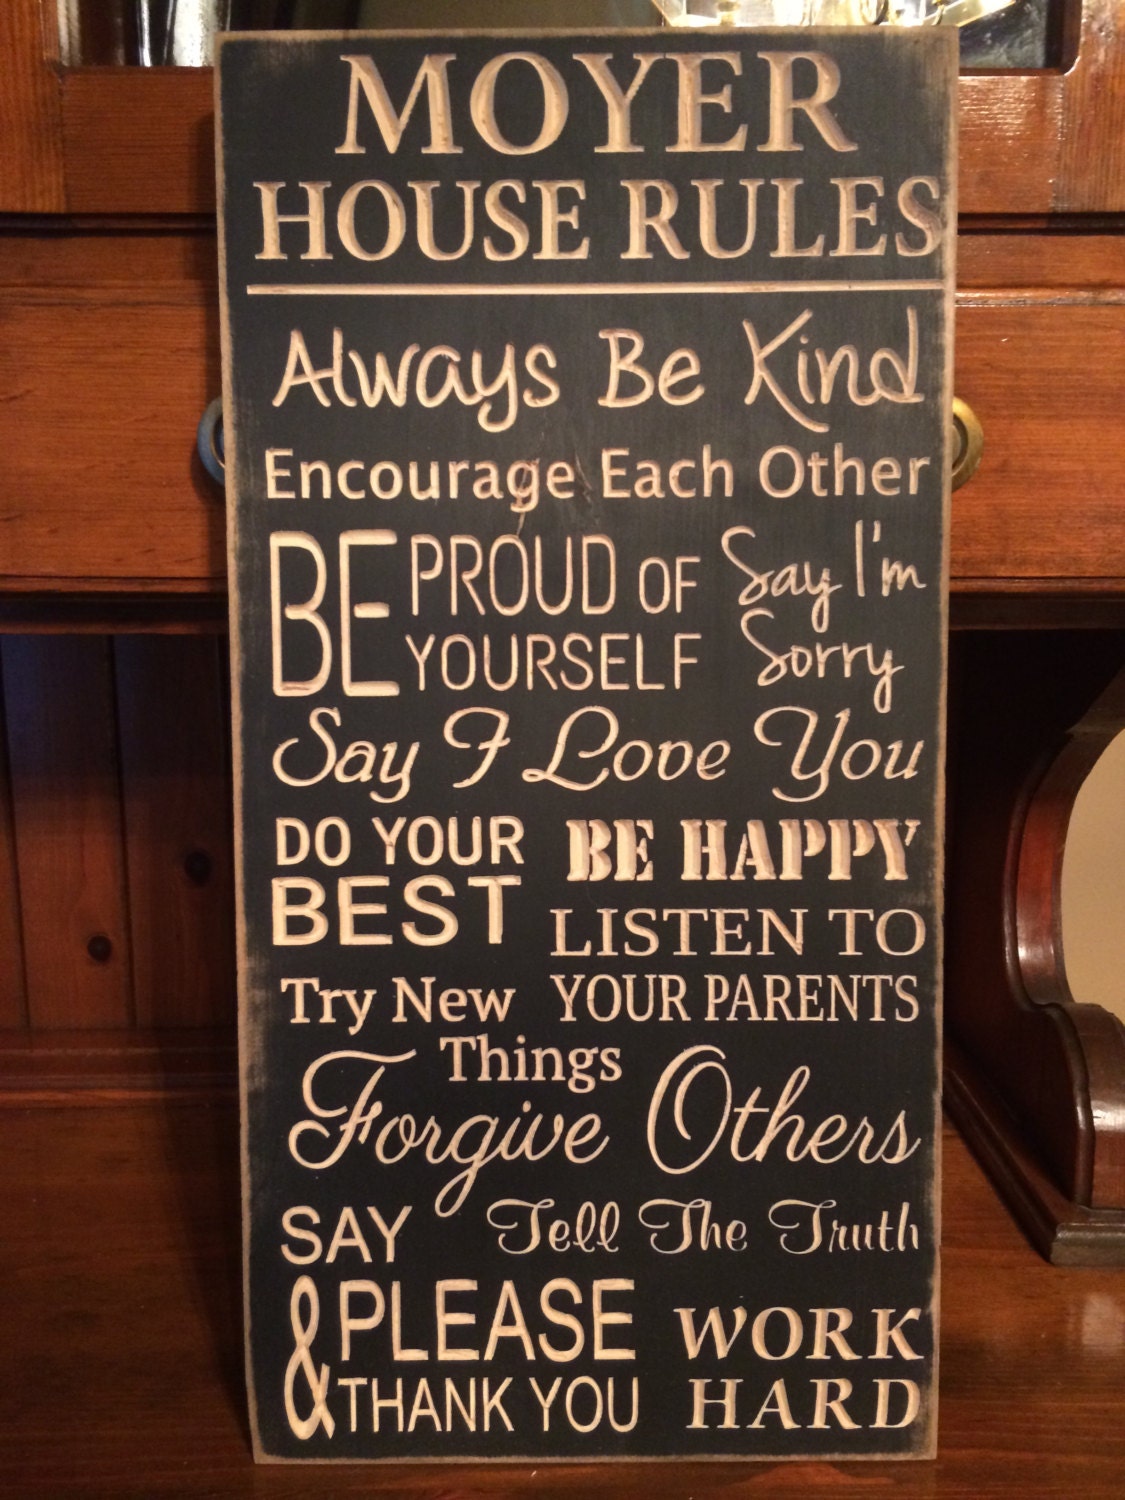 MOYER
HOUSE RULES
Always Be Kind
Encourage Each Other
BE PROUD OF
YOURSELF
Say I'm
Sorry
Say I Love You
DO YOUR
BEST
BE HAPPY
LISTEN TO
YOUR PARENTS
Try New
Things
Forgive Others
SAY
PLEASE
& THANK YOU
Tell The Truth
WORK
HARD